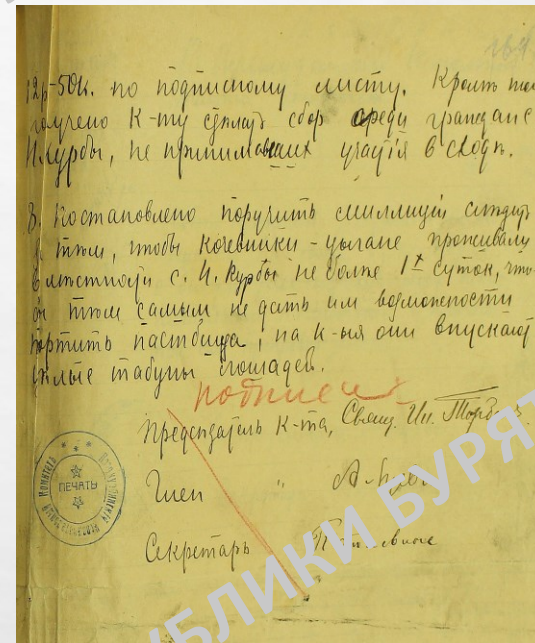 12р-50к. по подписному листу. Кромѣ
К-ту сдѣлать сбор среди граждан с
И. Курбы, не принимавших участiя в сходѣ.
3. Постановлено поручить смиллицiи слѣдить
тѣм, чтобы кочевники - цыгане проживали
в мѣстности с. И. Курбы не более 1х суток, что
тѣм самым не дать им возможности
портить пастбища, на к-ыя они впускают
цѣлые табуны лошадей.
подписи
Председатель К-та, Свящ. Ин.
Член "
Секретарь
ПЕЧАТЬ
БЛИКИ БУРЯТ